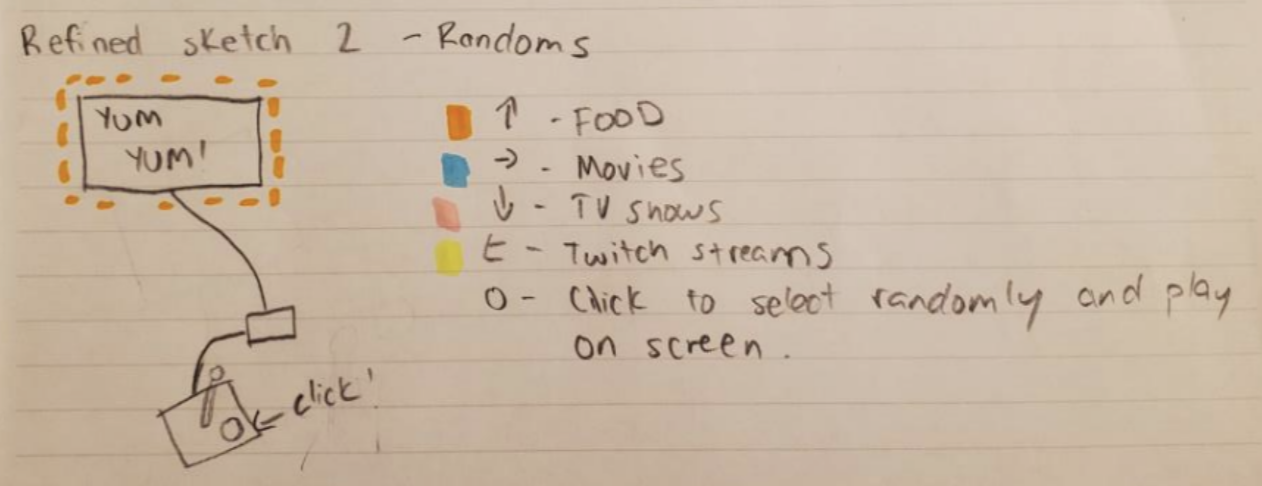 Refined sketch 2 - Randoms
YUM
YUM!
↑ - FOOD
→ - Movies
↓ - TV shows
← - Twitch streams
O - Click to select randomly and play
on screen.
click!